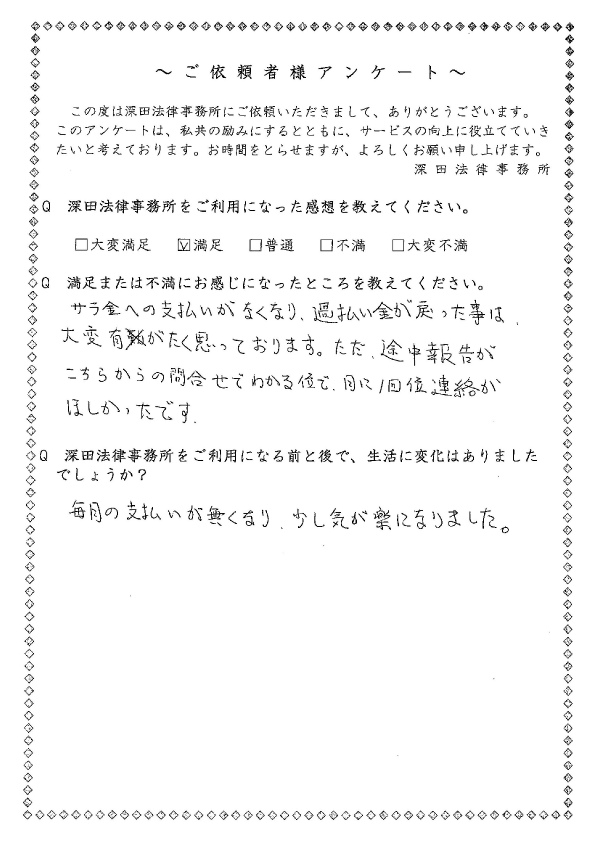 ～ご依頼者様アンケート～
この度は深田法律事務所にご依頼いただきまして、ありがとうございます。
このアンケートは、私共の励みにするとともに、サービスの向上に役立てていき
たいと考えております。お時間をとらせますが、よろしくお願い申し上げます。
深田法律事務所
Q 深田法律事務所をご利用になった感想を教えてください。
□大変満足 ☑満足 □普通 □不満 □大変不満
Q 満足または不満にお感じになったところを教えてください。
サラ金への支払いがなくなり、過払い金が戻った事は、
大変有難がたく思っております。ただ、途中報告が
こちらからの問合せでわかる位で、月に1回位連絡が
ほしかったです.
Q 深田法律事務所をご利用になる前と後で、生活に変化はありました
でしょうか？
毎月の支払いが無くなり、少し気が楽になりました。